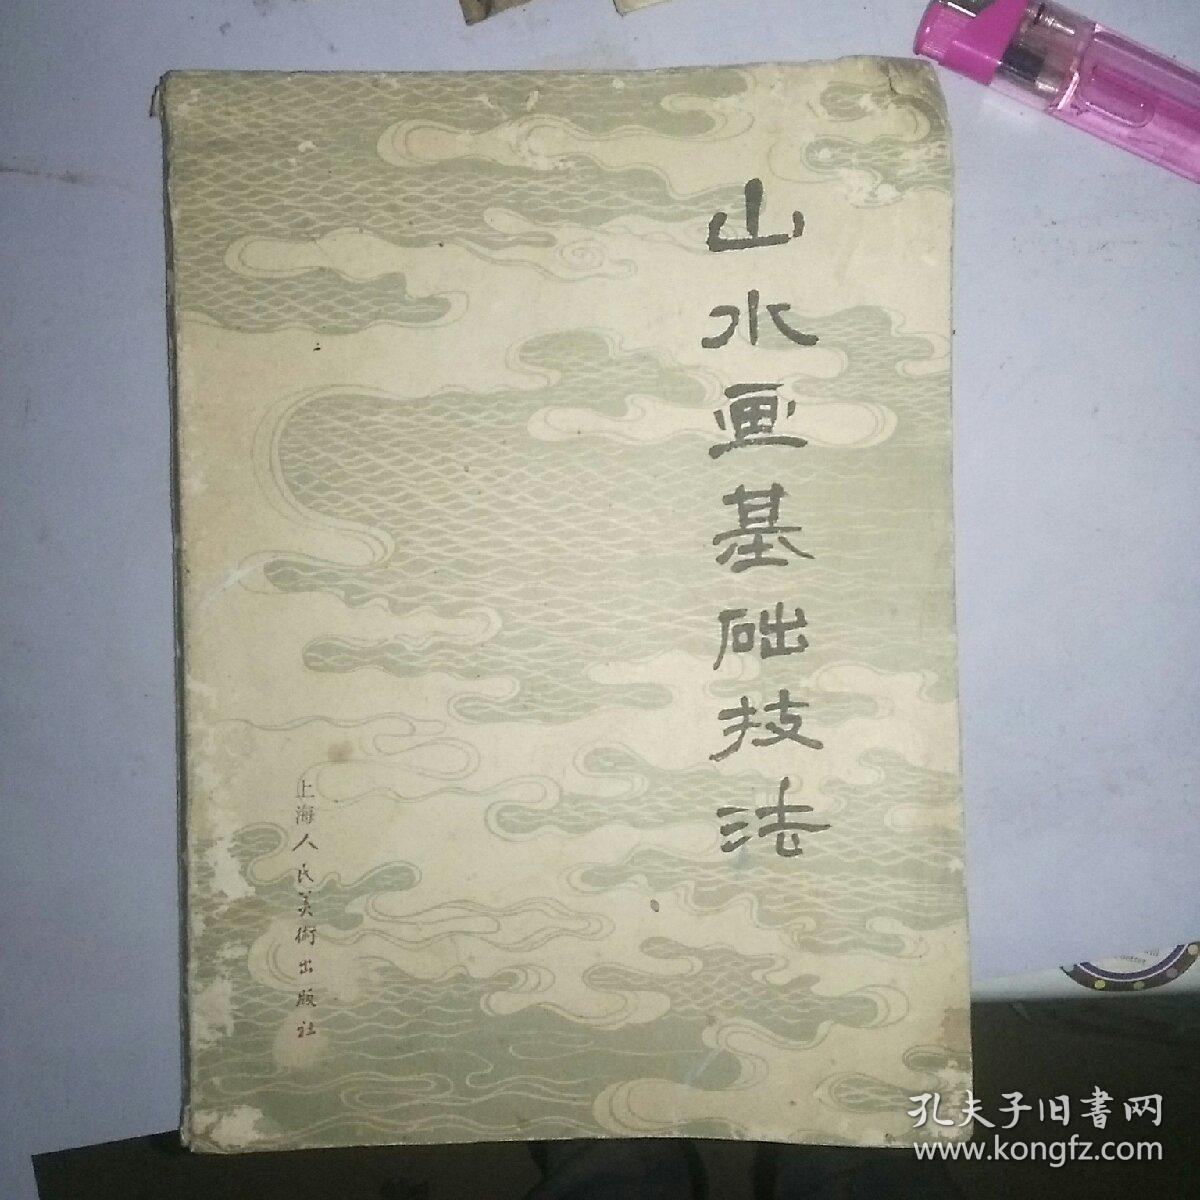 山水画基础技法
上海人民美術出版社
孔夫子旧書网
www.kongfz.com